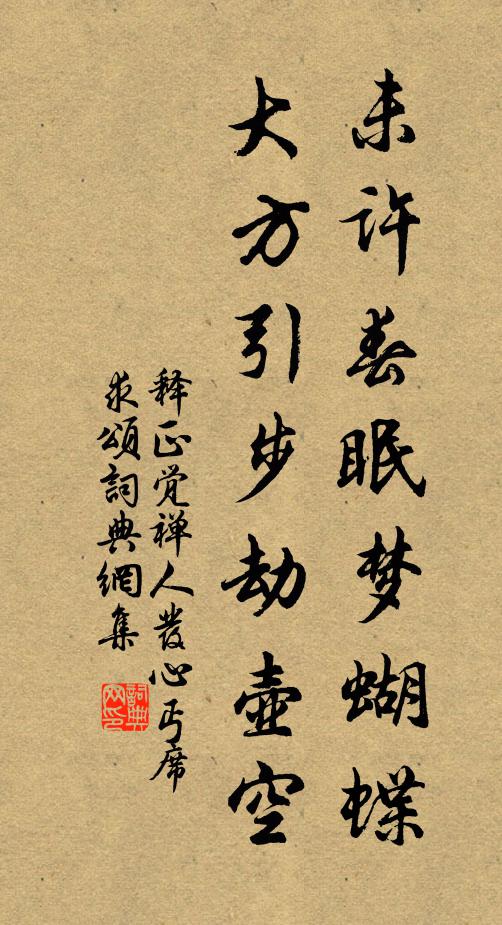 未许春眠梦蝴蝶
大方引步劫壶空
释正觉禅人发心丐席
求颂词典網集
詞典网印